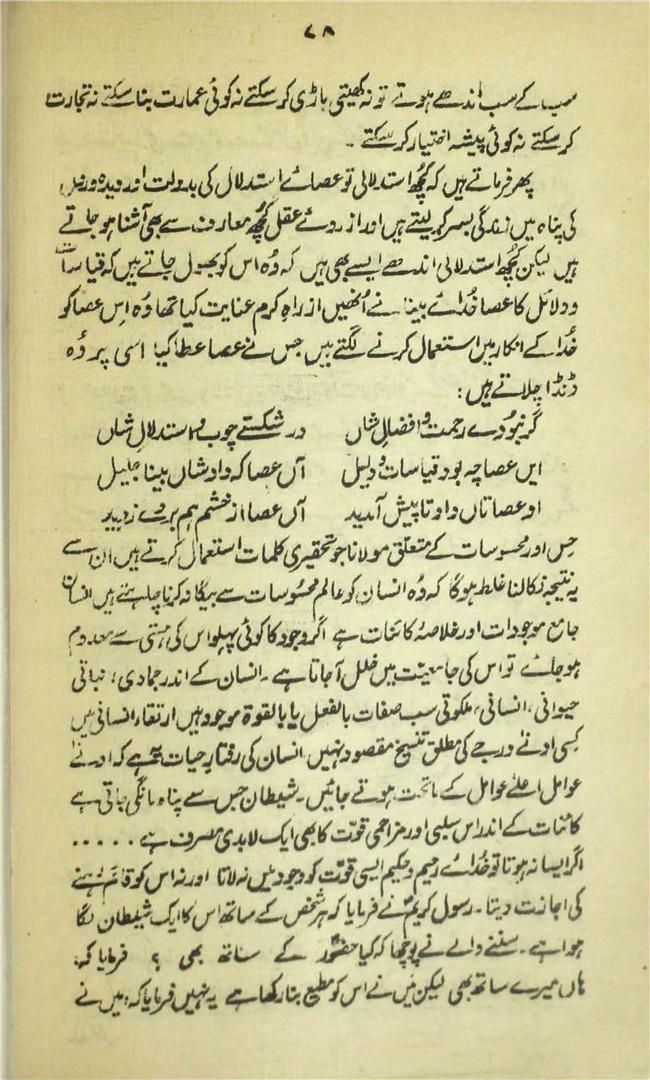 ۷۸
سب کے سب اندھے ہوتے تو نہ کھیتی باڑی کر سکتے نہ کوئی عمارت بنا سکتے نہ تجارت
کر سکتے نہ کوئی پیشہ اختیار کر سکتے ۔
پھر فرماتے ہیں کہ کچھ استدلالی تو عصائے استدلال کی بدولت اور دیدہ وروں
کی پناہ میں زندگی بسر کر لیتے ہیں اور از روئے عقل کچھ معارف سے بھی آشنا ہو جاتے
ہیں لیکن کچھ استدلالی اندھے ایسے بھی ہیں کہ وُہ اس کو بھول جاتے ہیں کہ قیاسات
و دلائل کا عصا خُدائے بینا نے اُنھیں از راہِ کرم عنایت کیا تھا وُہ اِس عصا کو
خُدا کے انکار میں استعمال کرنے لگتے ہیں جس نے عصا عطا کیا اسی پر وُہ
ڈنڈا چلاتے ہیں :
گر نبودے رحمت و افضالِ شاں در شکستے چوبِ استدلالِ شاں
ایں عصا چہ بود قیاسات و دلیل آں عصا کہ داد شاں بینا جلیل
او عصا تاں داد تا پیش آمدید آں عصا از خشم ہم بر وے زدید
حِس اور محسوسات کے متعلق مولانا جو تحقیری کلمات استعمال کرتے ہیں ان سے
یہ نتیجہ نکالنا غلط ہوگا کہ وُہ انسان کو عالمِ محسوسات سے بیگانہ کرنا چاہتے ہیں انسان
جامع موجودات اور خلاصۂ کائنات ہے اگر وجود کا کوئی پہلو اس کی ہستی سے معدوم
ہو جائے تو اس کی جامعیت میں خلل آ جاتا ہے ۔ انسان کے اندر جمادی، نباتی
حیوانی، انسانی، ملکوتی سب صفات بالفعل یا بالقوۃ موجود ہیں ارتقاء انسانی میں
کسی ادنےٰ درجے کی مطلق تنسیخ مقصود نہیں انسان کی رفتارِ حیات یہ ہے کہ ادنےٰ
عوامل اعلےٰ عوامل کے ماتحت ہوتے جائیں ۔ شیطان جس سے پناہ مانگی جاتی ہے
کائنات کے اندر اس سلبی اور مزاحمی قوّت کا بھی ایک لابدی مصرف ہے .....
اگر ایسا نہ ہوتا تو خُدائے رحیم و حکیم ایسی قوّت کو وجود میں نہ لاتا اور نہ اس کو قائم رہنے
کی اجازت دیتا ۔ رسول کریمؐ نے فرمایا کہ ہر شخص کے ساتھ اس کا ایک شیطان لگا
ہوا ہے ۔ سننے والے نے پوچھا کہ کیا حضورؐ کے ساتھ بھی ؟ فرمایا کہ
ہاں میرے ساتھ بھی لیکن میں نے اس کو مطیع بنا رکھا ہے یہ نہیں فرمایا کہ میں نے